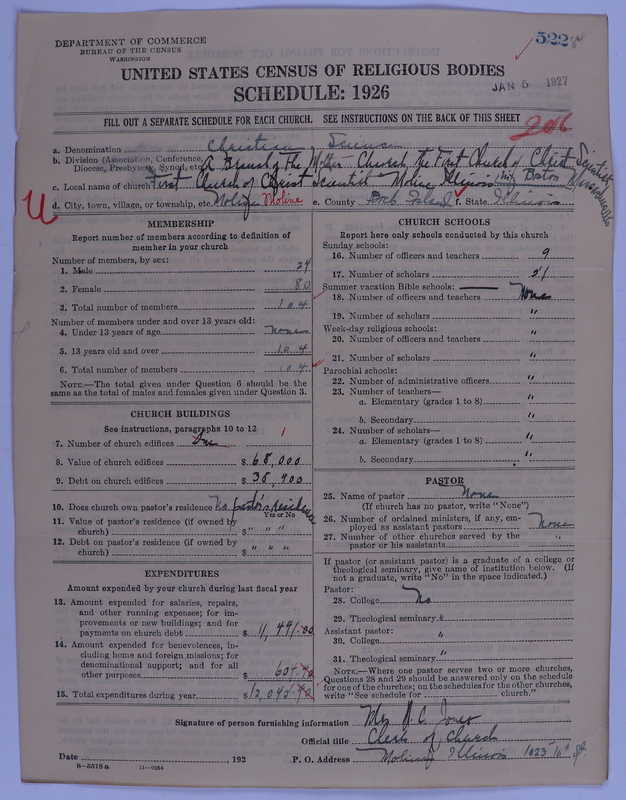 DEPARTMENT OF COMMERCE
BUREAU OF THE CENSUS
WASHINGTON
522
JAN 5 1927
UNITED STATES CENSUS OF RELIGIOUS BODIES
SCHEDULE: 1926
FILL OUT A SEPARATE SCHEDULE FOR EACH CHURCH. SEE INSTRUCTIONS ON THE BACK OF THIS SHEET
206
a. Denomination Christian Science
b. Division (Association, Conference, Diocese, Presbytery, Synod, etc.) A Branch of the Mother Church, the First Church of Christ Scientist, in Boston Massachusetts
c. Local name of church First Church of Christ Scientist Moline Illinois
d. City, town, village, or township, etc. Moline Moline e. County Rock Island f. State Illinois
MEMBERSHIP
Report number of members according to definition of
member in your church
Number of members, by sex:
1. Male 24
2. Female 80
3. Total number of members 104
Number of members under and over 13 years old:
4. Under 13 years of age none
5. 13 years old and over 104
6. Total number of members 104
NOTE.—The total given under Question 6 should be the
same as the total of males and females given under Question 3.
CHURCH BUILDINGS
See instructions, paragraphs 10 to 12
7. Number of church edifices One 1
8. Value of church edifices $ 68,000
9. Debt on church edifices $ 38,400
10. Does church own pastor's residence No pastor's residence
Yes or No
11. Value of pastor's residence (if owned by
church) $ " " "
12. Debt on pastor's residence (if owned by
church) $ " " "
EXPENDITURES
Amount expended by your church during last fiscal year
13. Amount expended for salaries, repairs,
and other running expenses; for im-
provements or new buildings; and for
payments on church debt $ 11,441.00
14. Amount expended for benevolences, in-
cluding home and foreign missions; for
denominational support; and for all
other purposes $
15. Total expenditures during year $
CHURCH SCHOOLS
Report here only schools conducted by this church
Sunday schools:
16. Number of officers and teachers 9
17. Number of scholars 51
Summer vacation Bible schools:
18. Number of officers and teachers None
19. Number of scholars "
Week-day religious schools:
20. Number of officers and teachers "
21. Number of scholars "
Parochial schools:
22. Number of administrative officers "
23. Number of teachers—
a. Elementary (grades 1 to 8) "
b. Secondary "
24. Number of scholars—
a. Elementary (grades 1 to 8) "
b. Secondary "
PASTOR
25. Name of pastor None
(If church has no pastor, write "None")
26. Number of ordained ministers, if any, em-
ployed as assistant pastors None
27. Number of other churches served by the
pastor or his assistants "
If pastor (or assistant pastor) is a graduate of a college or
theological seminary, give name of institution below. (If
not a graduate, write "No" in the space indicated.)
Pastor:
28. College No
29. Theological seminary "
Assistant pastor:
30. College "
31. Theological seminary "
NOTE.—Where one pastor serves two or more churches,
Questions 28 and 29 should be answered only on the schedule
for one of the churches; on the schedules for the other churches,
write "See schedule for church."
Signature of person furnishing information Mrs. H. C. Jones
Official title Clerk of Church
Date , 192 P. O. Address Moline Illinois 1023 16th St
8—5518a 11—9034